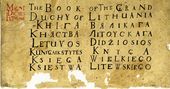 MAGNI DUCATUS LITHUANIÆ
THE BOOK OF THE GRAND
DUCHY OF LITHUANIA
КНІГА ВЯЛІКАГА
КНЯСТВА ЛІТОЎСКАГА
LIETUVOS DIDŽIOSIOS
KUNIGAIKŠTYSTĖS KNYGA
KSIĘGA WIELKIEGO
KSIĘSTWA LITEWSKIEGO